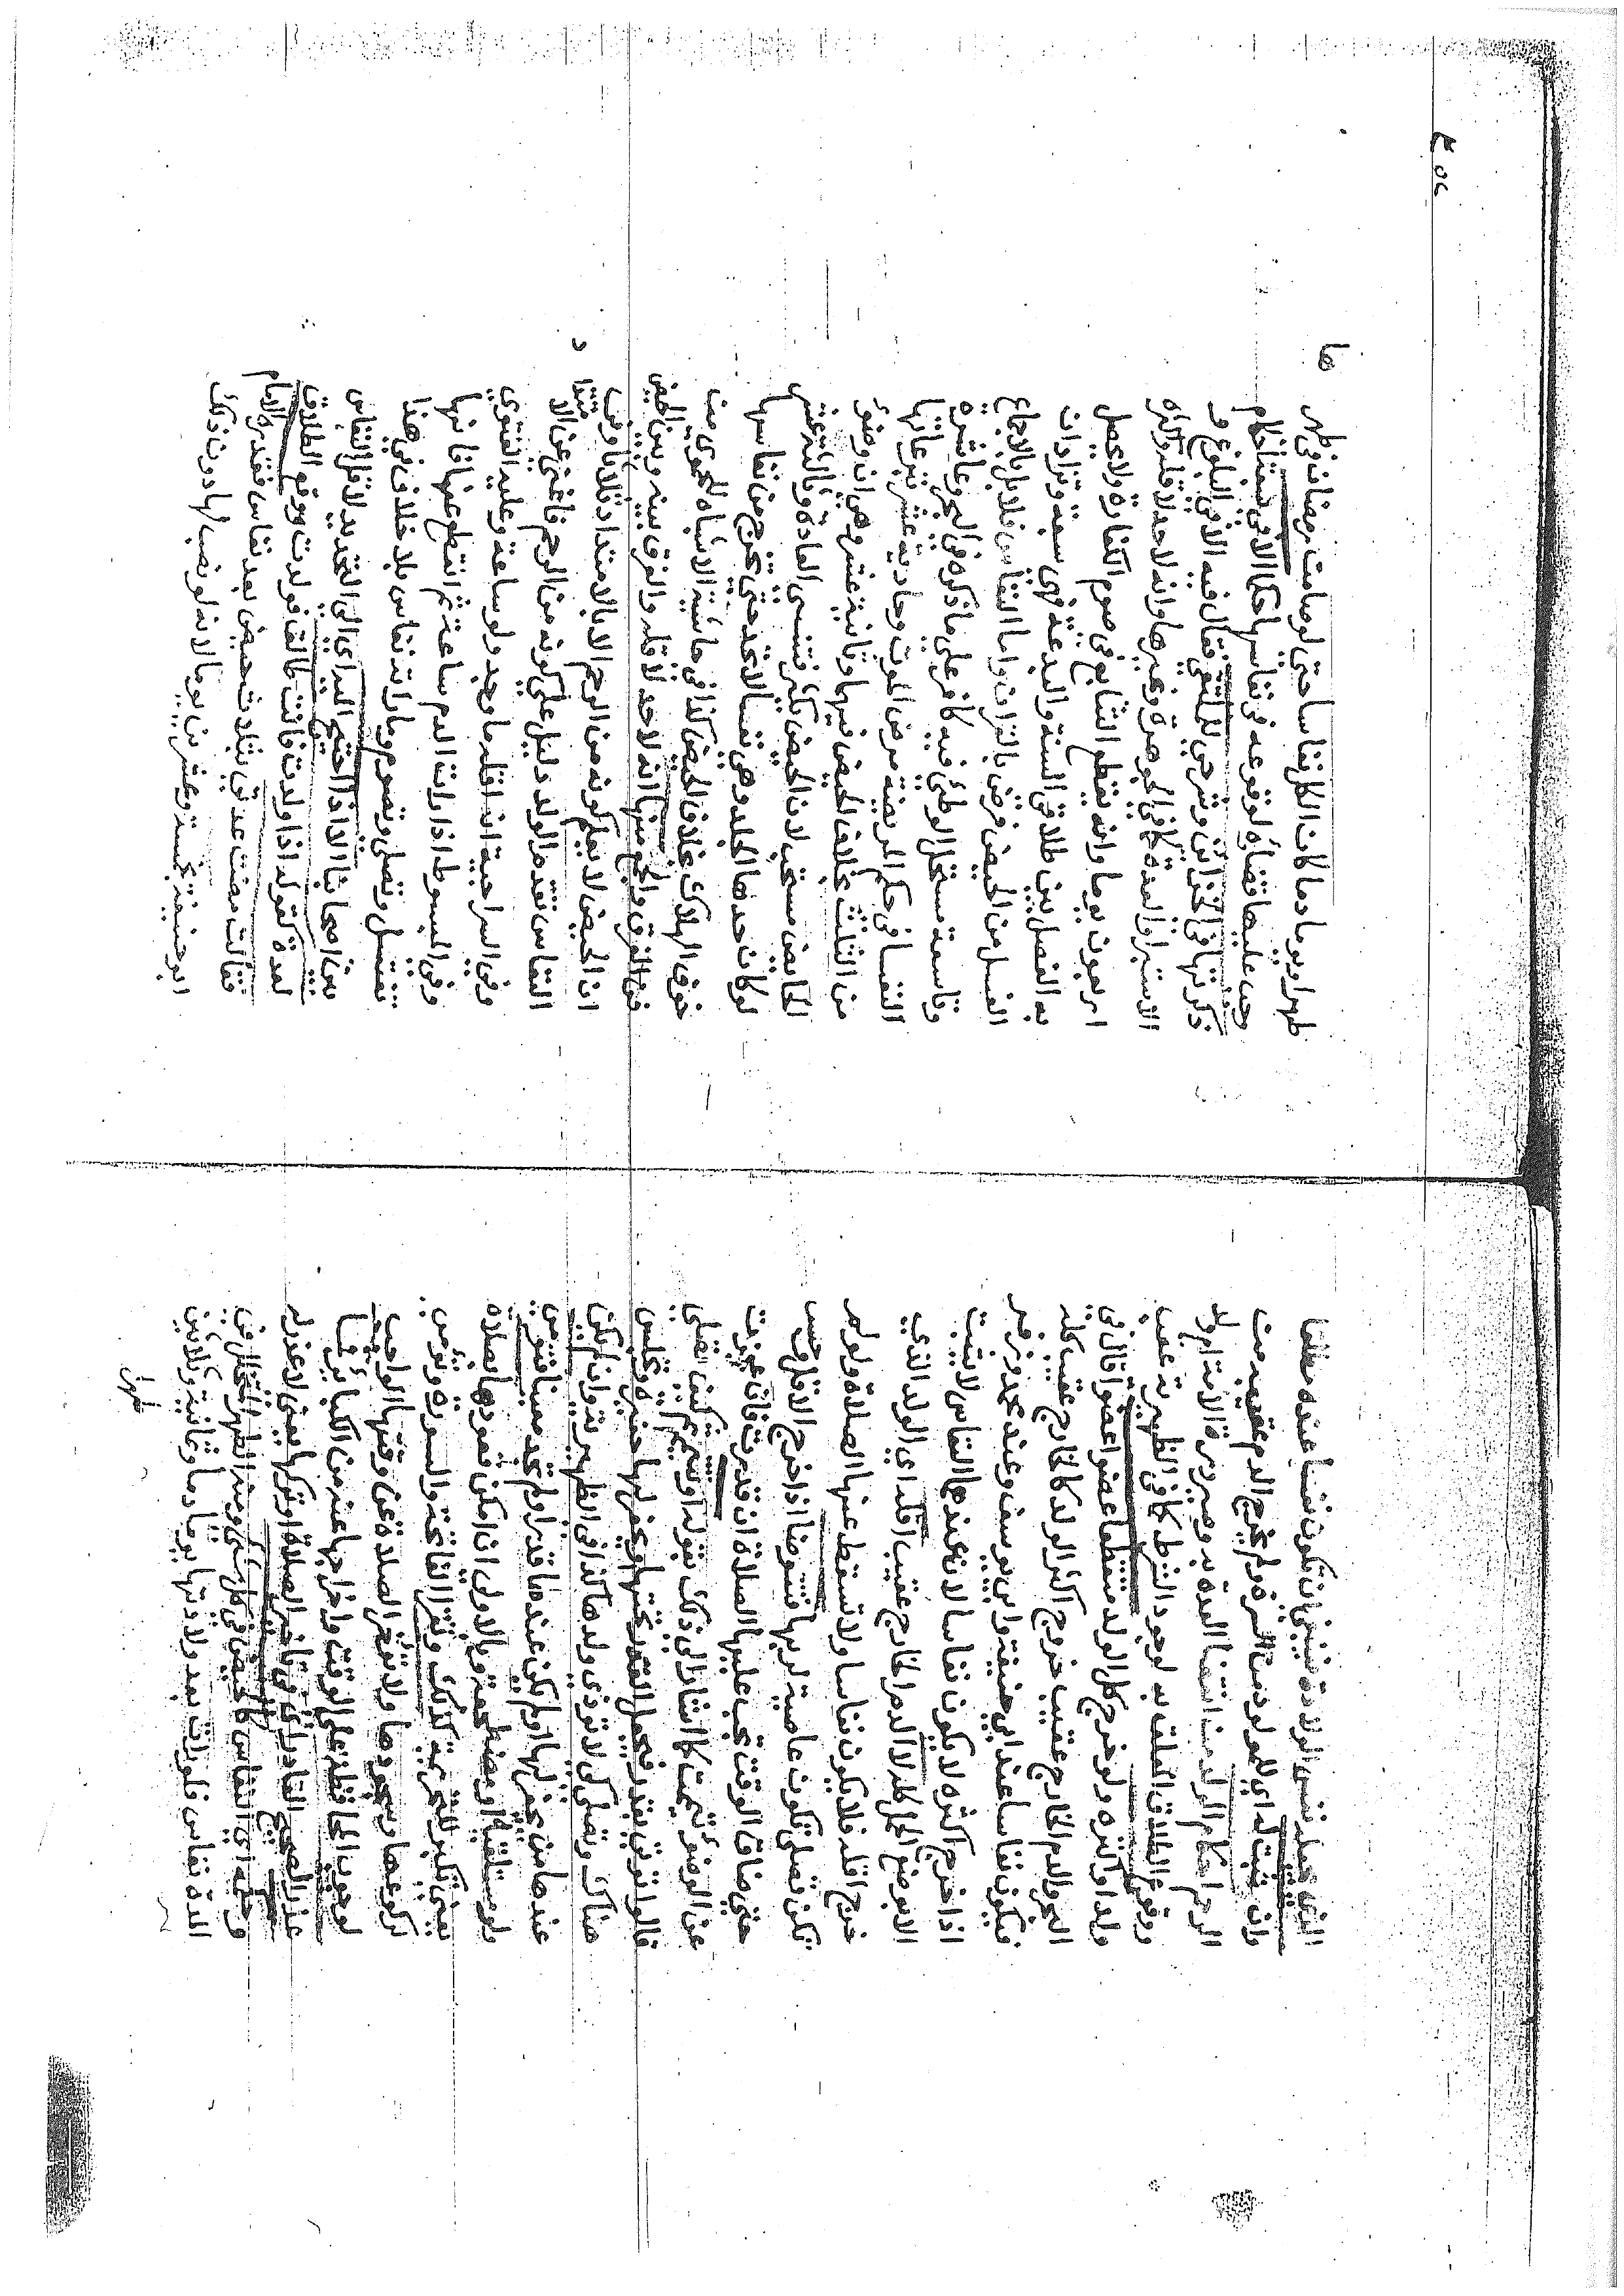 الذي يحصل بنفس الولادة فينبغي ان تكون نفسا عنده مطلقا
وان ثبت له اي للمولود من السرة ولم يخرج الدم عقيبه من
الرحم احكام الولد من انقضا العدة به وصيرورة الامة ام ولد
ووقوع الطلاق المعلق به لوجود الشرط كما في الظهيرية عقب
ولد او اكثره ولو خرج كل الولد متقطعا عضوا عضوا قال في
البحر والدم الخارج عقيب خروج اكثر الولد كالخارج عقيب كله
فيكون نفاسا عند ابي حنيفة وابي يوسف وعند محمد وزفر
اذا خرج اكثره لا يكون نفاسا لان عندهما النفاس لا يثبت
الا بوضع الحمل كله لا الدم الخارج عقيب اقله اي الولد الذي
خرج اقله فلا يكون نفاسا ولا تسقط عنها الصلاة ولو لم
تكن تصلي تكون عاصية لربها فتتوضا اذا خرج الاقل وخس
حتي ضاق الوقت يجب عليها الصلاة ان قدرت فان عجزت
عن الوضو تيممت كما اشار الي ذلك بقوله او تتيمم كيف تصلي
قالوا تؤتي بقدر فيجعل القدر تحتها او يحفر لها حفيرة وتجلس
هناك وتصلي كي لا تؤذي ولدها كذا في الظهيرية وان لم يكن
عندها من يحفر لها او لم يكن عندها قدر او لم تجد معينا فتومي
ولو مستلقية او مضطجعة وبالاولي ان امكن قعودها بصلاة
يعني تكبر للتحريمة كذلك وتقرا الفاتحة والسورة وتومي
بركوعها وسجودها ولا تؤخر الصلاة عن وقتها الواجب
لوجوب المحافظة علي الوقت واخراجها عنه من الكبائر فما
عذر الصحيح القادر اي في تاخير الصلاة او تركها يعني لا عذر له
وحكمه اي النفاس كالحيض في كل شي ومنه الطهر المتخلل في
المدة نفاس فلو رات بعد ولادتها يوما دما وثمانية وثلاثين
طهرا
طهرا ويوما دما كان الكل نفاسا حتى لو صامت رمضان في طهر
وجب عليها قضاؤه لوقوعه في نفاسها حكما الا في سبعة احكام
ذكرتها في الخزائن وشرحي للملتقي فقال فيه الا في البلوغ و
الاستبرا والعدة كما في الجوهرة وغيرها وانه لا حد لاقله واكثره
اربعون يوما وانه يقطع التتابع في صوم الكفارة ولا يحصل
به الفصل بين طلاقي السنة والبدعة فهي سبعة وتزاد ان
الغسل من الحيض فرض بالقران واما النفاس فلا بل بالاجماع
وتاسعة مستحل الوطئ فيه كافر علي ما ذكره في البحر وعاشرة
النفسا في حكم المريضة مرض الموت وحادية عشر تبرعاتها
من الثلث بخلاف الحيض فيهما وثانية عشر وهي ان وضوئ
الحائض مستحب لان الحيض يكثر فتنسى العادة وثالثة عشر
لو كان حدها الجلد وهي نفسا لا تحد حتي تخرج من نفاسها
خوف الهلاك بخلاف الحيض كذا في حاشية الاشباه للحموي من
فن الفرق والجمع منها انه لا حد لاقله والفرق بينه وبين الحيض
ان الحيض لا يعلم كونه من الرحم الا بالامتداد ثلاثا وفي
النفاس تقدم الولد دليل علي كونه من الرحم فاغني عن الامتداد
وفي السراجية ان اقله ما وجد ولو ساعة وعليه الفتوي
وفي المبسوط اذا رات الدم ساعة ثم انقطع عنها فانها
تغتسل وتصلي وتصوم وما راته نفاس بلا خلاف في هذا
بين اصحابنا الا اذا احتيج اليه اي الي التحديد لاقل النفاس
لعدة كقوله اذا ولدت فانت طالق فولدت ووقع الطلاق
فقالت مضت عدتي بثلاث حيض بعد نفاس فقدره الامام
ابو حنيفة بخمسة وعشرين يوما لانه لو نصب لها دون ذلك